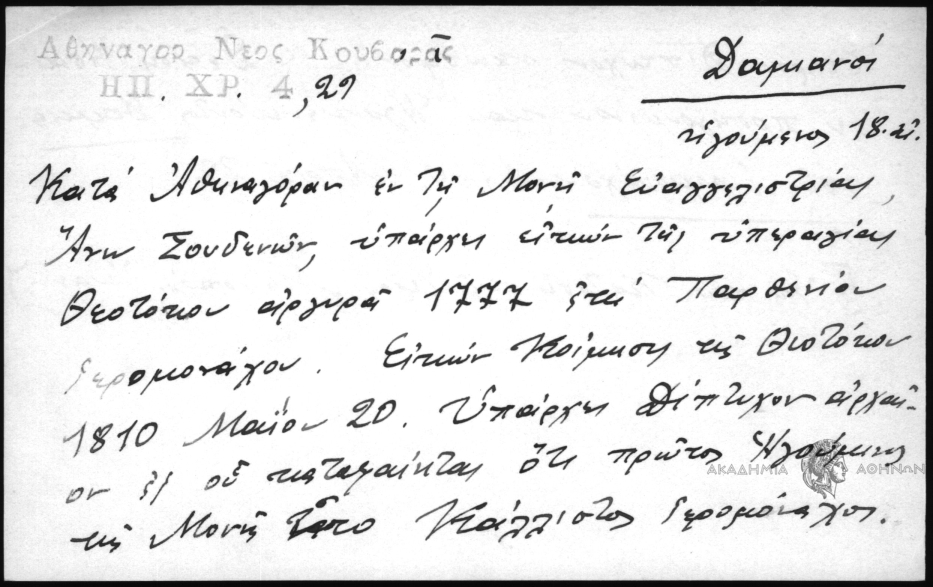 Αθηναγορ Νεος Κουβαρᾶς
ΗΠ. ΧΡ. 4, 29
Δαμιανός
ἡγούμενος 18. αἰ.
Κατά Ἀθηναγόραν ἐν τῇ Μονῇ Εὐαγγελιστρίας,
Ἄνω Σουδενῶν, ὑπάρχει εἰκών τῆς ὑπεραγίας
Θεοτόκου ἀργυρᾶ 1777 ἐπί Παρθενίου
ἱερομονάχου. Εἰκών Κοίμησις τῆς Θεοτόκου
1810 Μαΐου 20. Ὑπάρχει Δίπτυχον ἀρχαῖ-
ον ἐξ οὗ καταφαίνεται ὅτι πρῶτος Ἡγούμενος
τῆς Μονῆς Κάλλιστος ἱερομόναχος.
ΑΚΑΔΗΜΙΑ ΑΘΗΝΩΝ